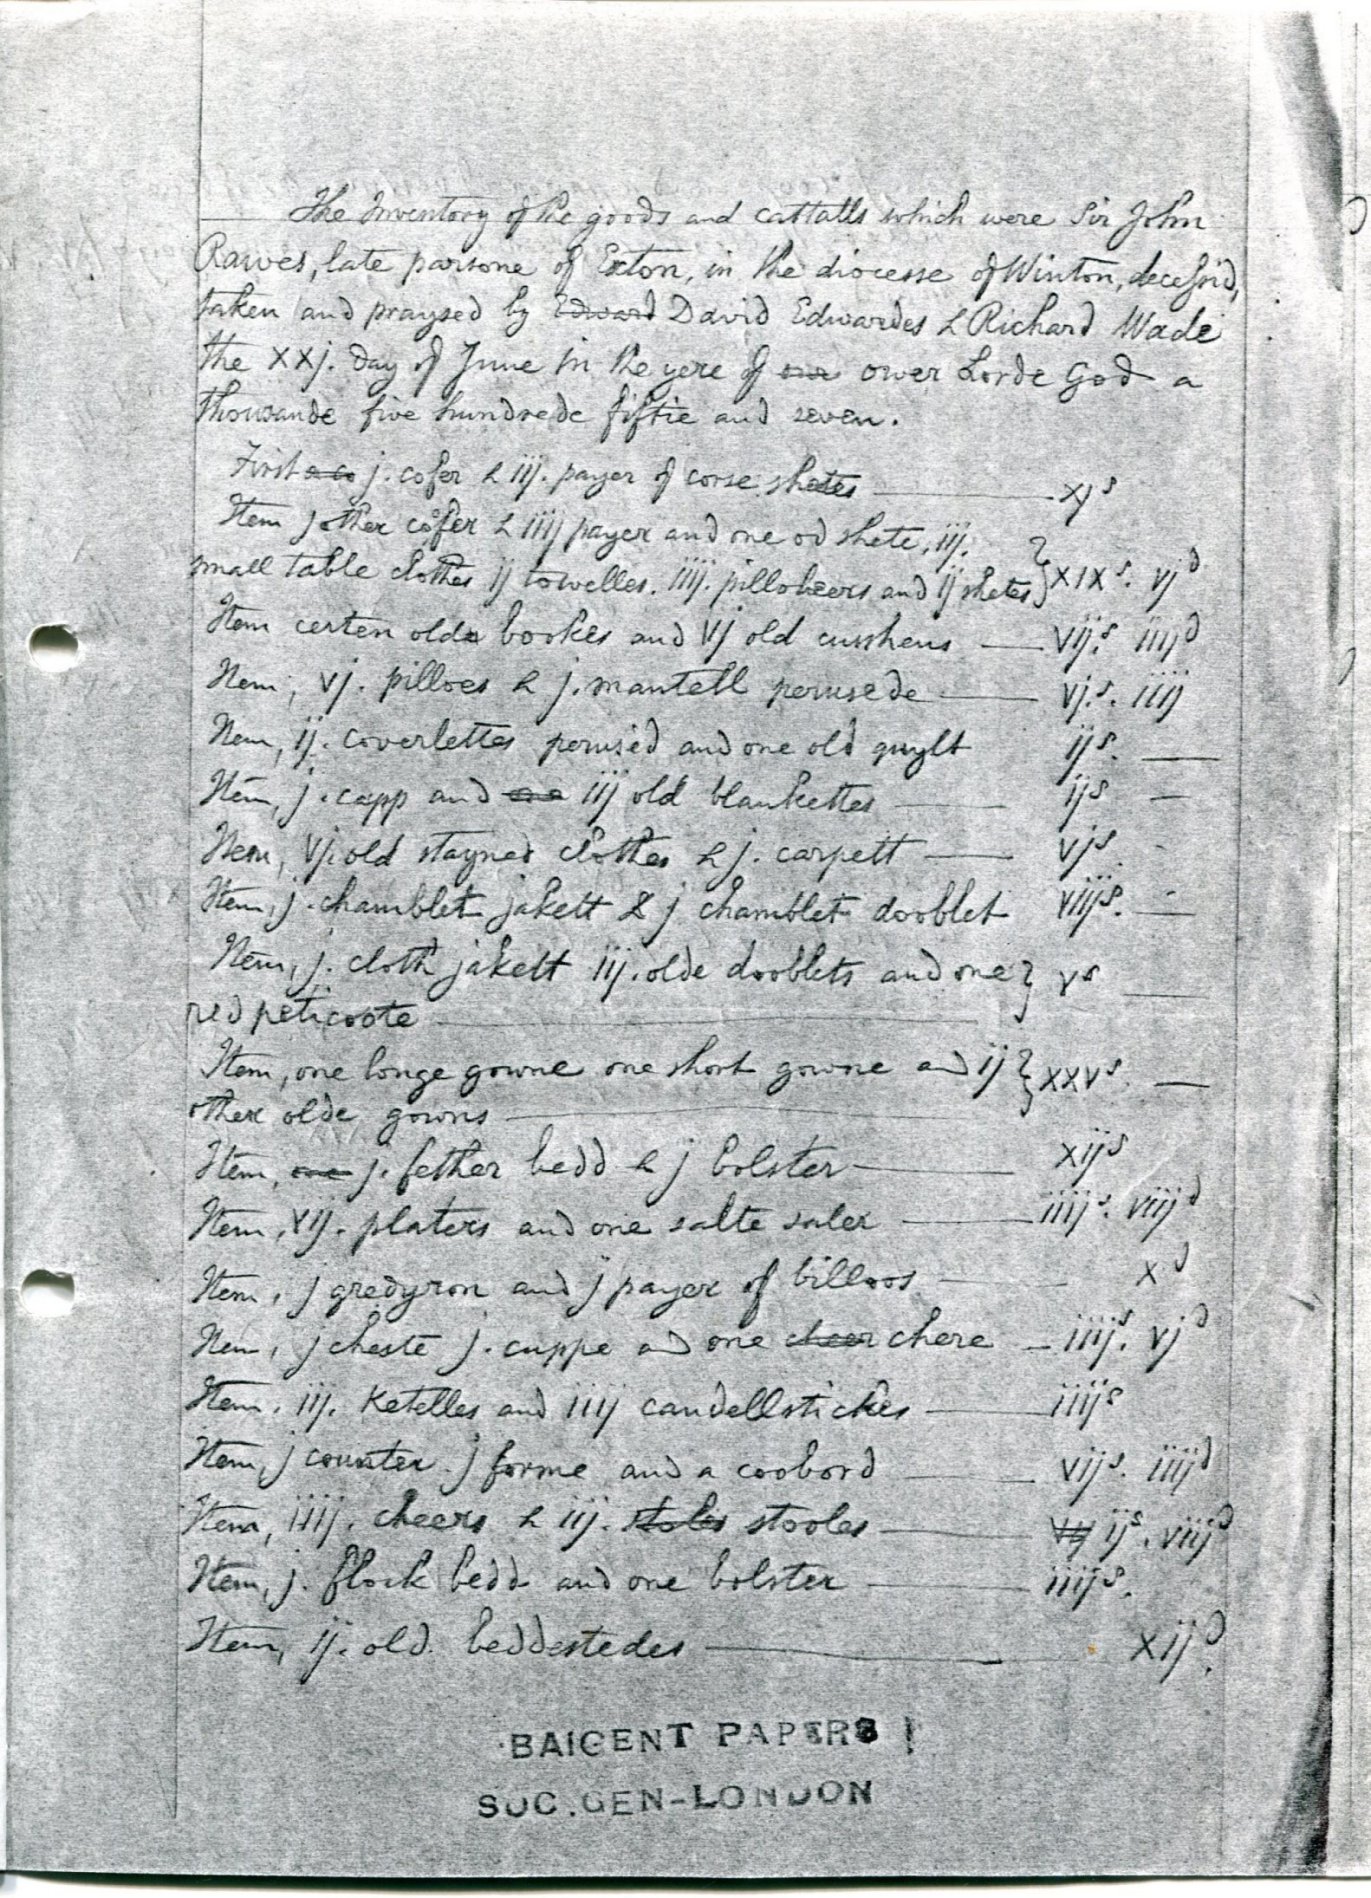 The Inventory of the goods and cattalls which were Sir John
Rawes, late parsone of Exton, in the diocesse of Winton, decessid,
taken and praysed by Edward David Edwardes & Richard Wade
the xxj. day of June in the yere of our ower Lorde God a
thousande five hundrede fiftie and seven.
First a co j. cofer & iij. payer of corse shetes xjs
Item j other cofer & iiij payer and one od shete, iij.
small table clothes ij towelles. iiij. pillobeers and ij shetes xixs. vjd
Item certen olde bookes and vj old cusshens vijs. iiijd
Item, vj. pilloes & j. mantell perusede vj.s. iiij
Item, ij. coverlettes perused and one old quylt ijs.
Item, j. capp and one iij old blankettes ijs
Item, vj. old stayned clothes & j. carpett vjs.
Item, j. chamblet jakett & j chamblet dooblet viijs.
Item, j. cloth jakett iij. olde dooblets and one vs
red peticoote
Item, one longe gowne one short gowne and ij xxvs.
other olde gowns
Item, one j. fether bedd & j bolster xijs
Item, vij. platers and one salte saler iiijs. viijd
Item, j gredyron and j payer of billoos xd
Item, j cheste j. cuppe and one cheer chere iiijs. vjd
Item. iij. Ketelles and iiij candellstickes iiijs
Item, j counter j forme and a coobord vijs. iiijd
Item, iiij. cheers & iij. stoles stooles ijs. viijd
Item, j. flock bedd and one bolster iiijs.
Item, ij. old beddestedes xijd.
BAIGENT PAPERS
SOC. GEN-LONDON